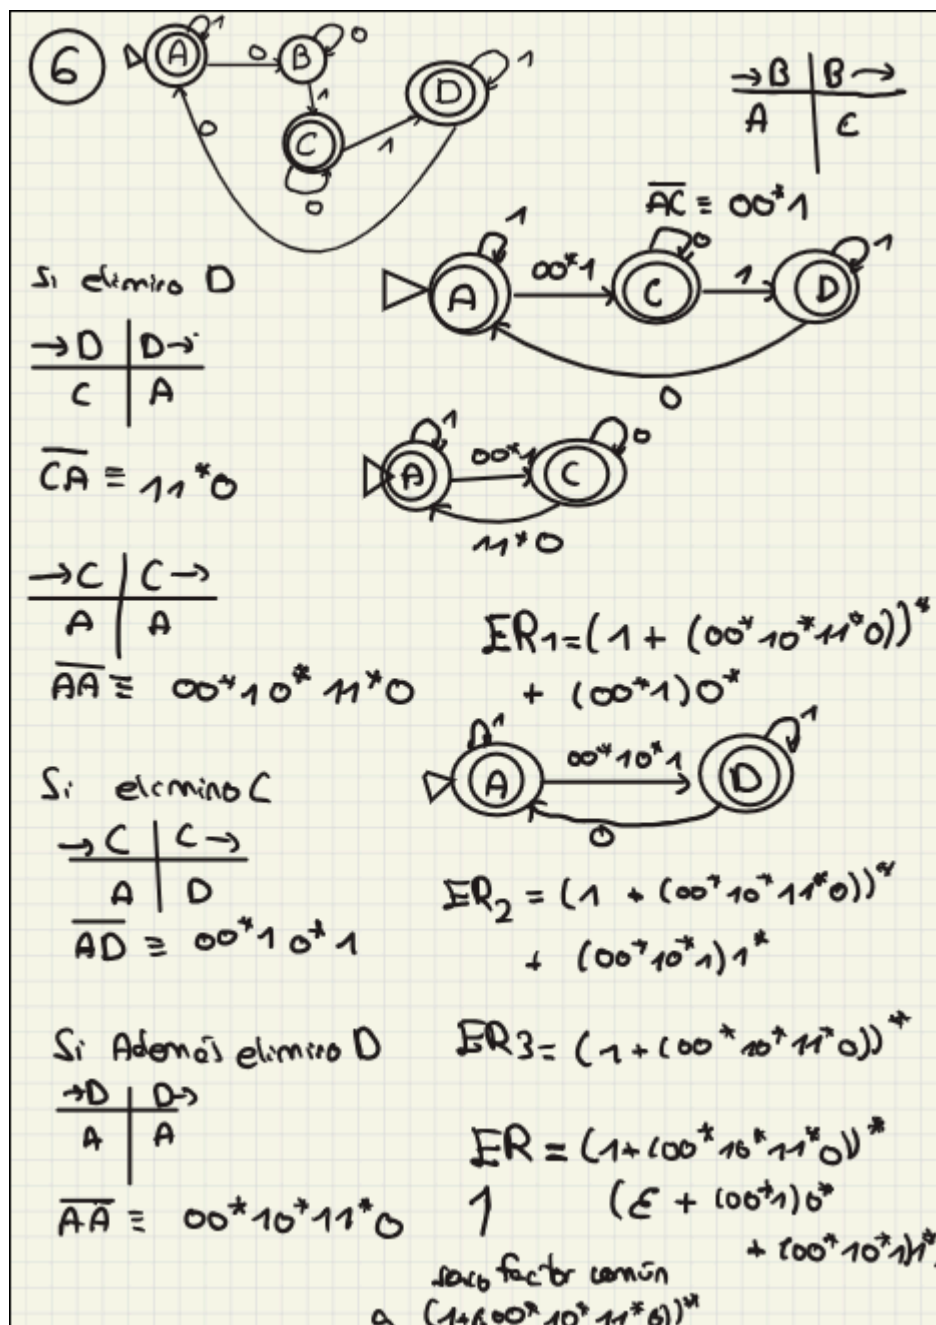 6
A 1 0 B 0 1 C 0 1 D 1 0
→B | B→
A | C
AC ≡ 00*1
A 1 00*1 C 0 1 D 1 0
Si elimino D
→D | D→
C | A
CA ≡ 11*0
A 1 00*1 C 0 11*0
→C | C→
A | A
AA ≡ 00*10*11*0
ER1=(1 + (00*10*11*0))*
+ (00*1)0*
A 1 00*10*1 D 1 0
Si elimino C
→C | C→
A | D
AD ≡ 00*10*1
ER2 = (1 + (00*10*11*0))*
+ (00*10*1)1*
Si Además elimino D
→D | D→
A | A
AA ≡ 00*10*11*0
ER3= (1+(00*10*11*0))*
ER = (1+(00*10*11*0))*
(ε + (00*1)0*
+ (00*10*1)1*
saco factor común
a (1+(00*10*11*0))*